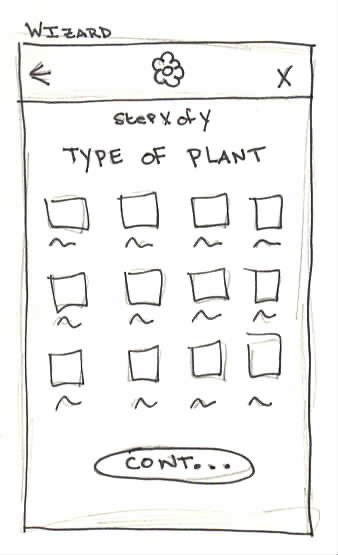 WIZARD
X
Step X of Y
TYPE OF PLANT
CONT...